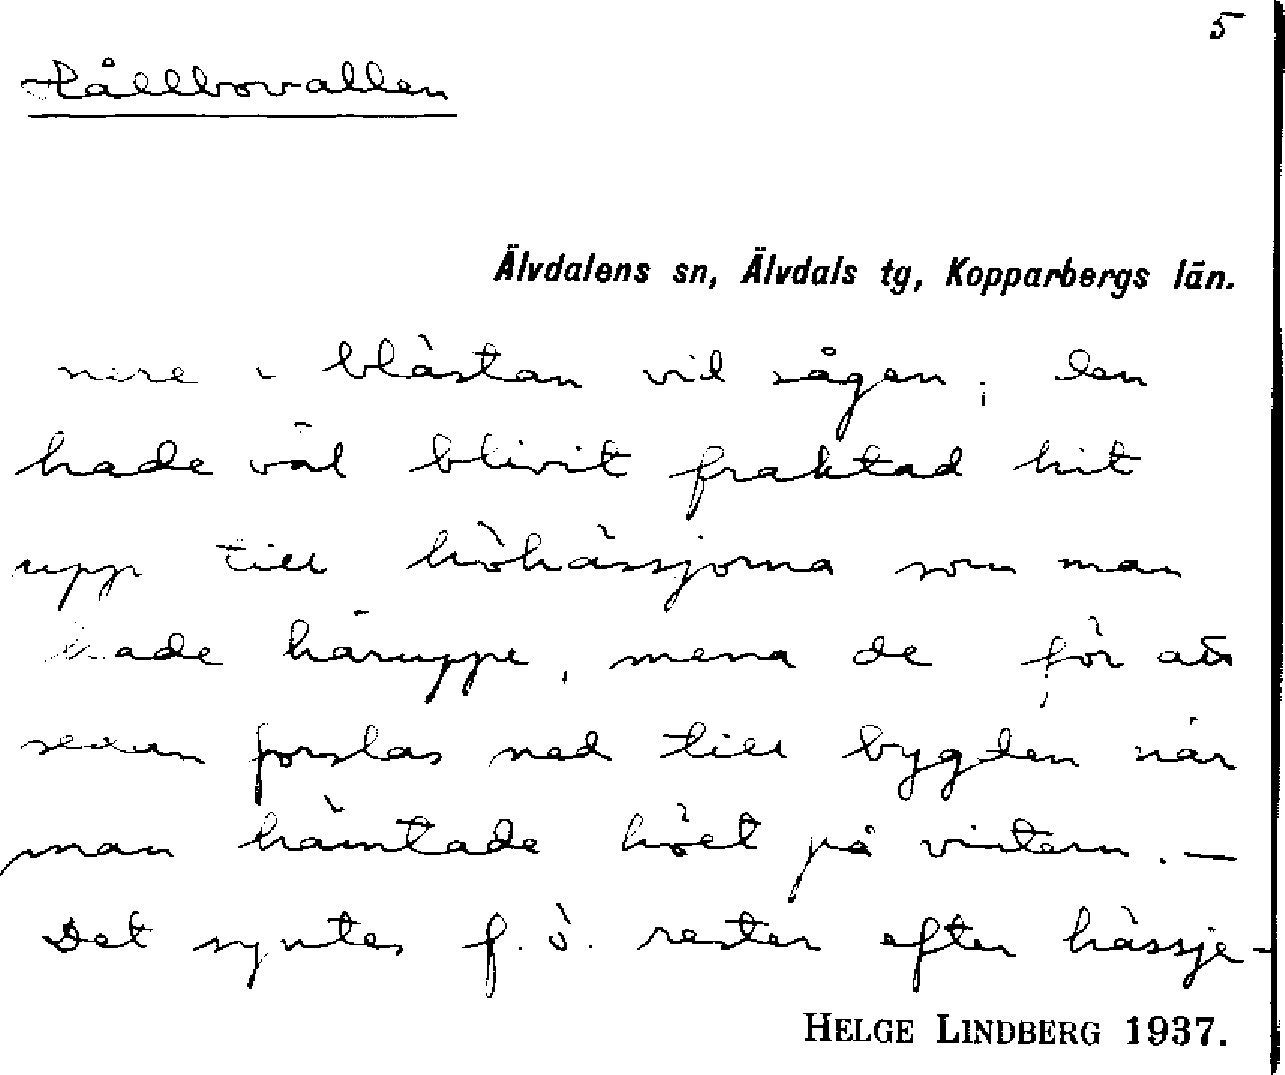 5
Hållbovallen
Älvdalens sn, Älvdals tg, Kopparbergs län.
nere i blästan vid sågen; den
hade väl blivit fraktad hit
upp till höhässjorna som man
hade häruppe, mena de för att
sedan forslas ned till bygden när
man hämtade höet på vintern. —
Det syntes f. ö. rester efter hässje-
HELGE LINDBERG 1937.